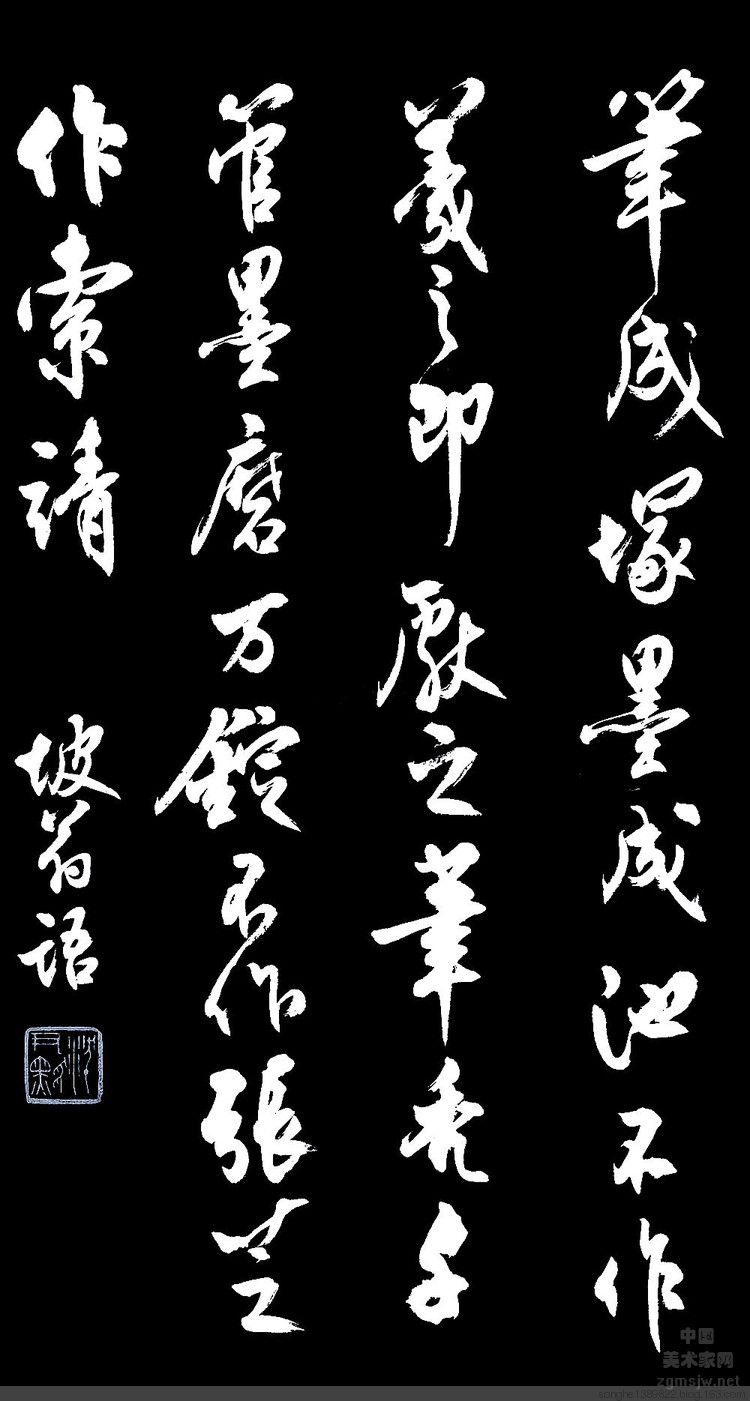 筆成塚墨成池不作
羲之即獻之筆禿千
管墨磨万錠不作張芝
作索靖
坡翁語
中国
美术家网
zgmsjw.net
sanghe1389822.blog.163.com